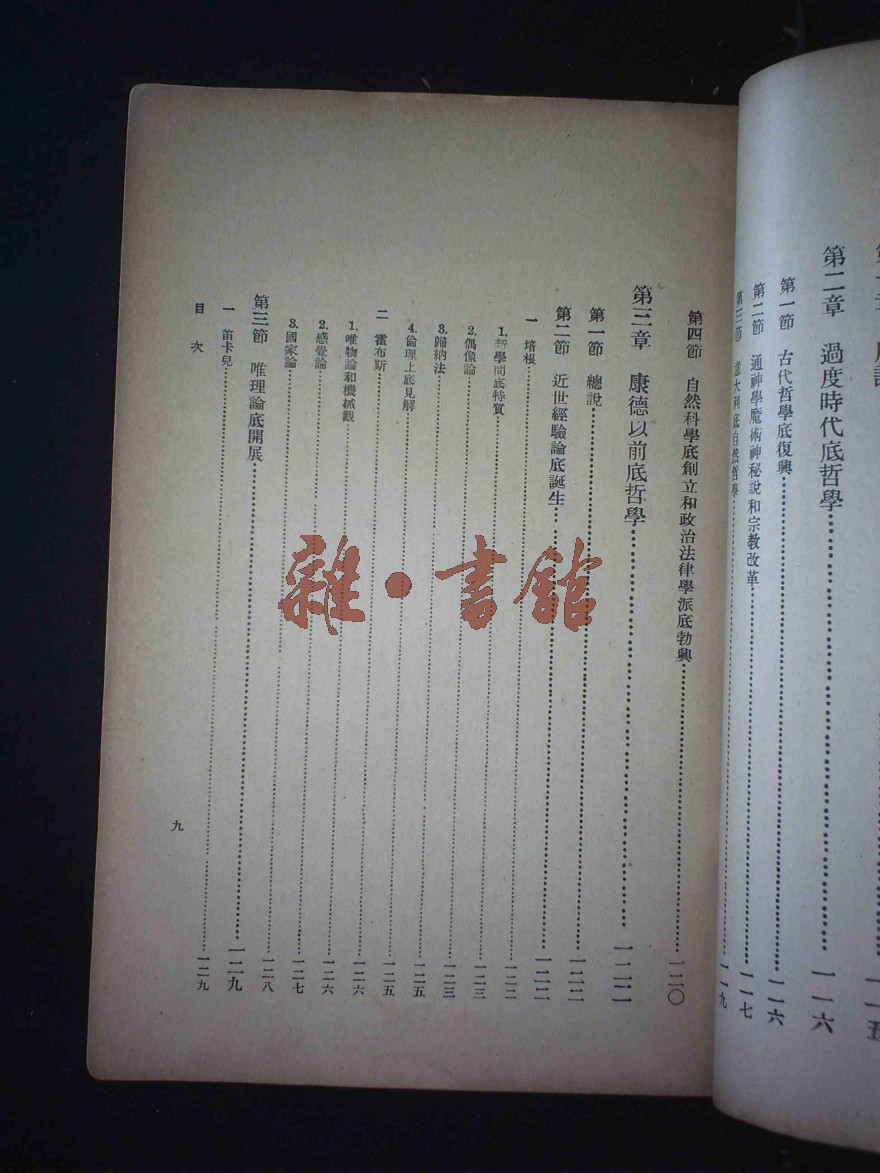 一一五
第二章 過度時代底哲學……一一六
第一節 古代哲學底復興……一一六
第二節 通神學魔術神秘說和宗教改革……一一七
第三節 意大利底自然哲學……一一九
第四節 自然科學底創立和政治法律學派底勃興……一二〇
第三章 康德以前底哲學……一二二
第一節 總說……一二二
第二節 近世經驗論底誕生……一二二
一 培根……一二二
1.新學問底特質……一二三
2.偶像論……一二三
3.歸納法……一二五
4.倫理上底見解……一二五
二 霍布斯……一二六
1.唯物論和機械觀……一二六
2.感覺論……一二七
3.國家論……一二八
第三節 唯理論底開展……一二九
一 笛卡兒……一二九
目次
九
雜·書館